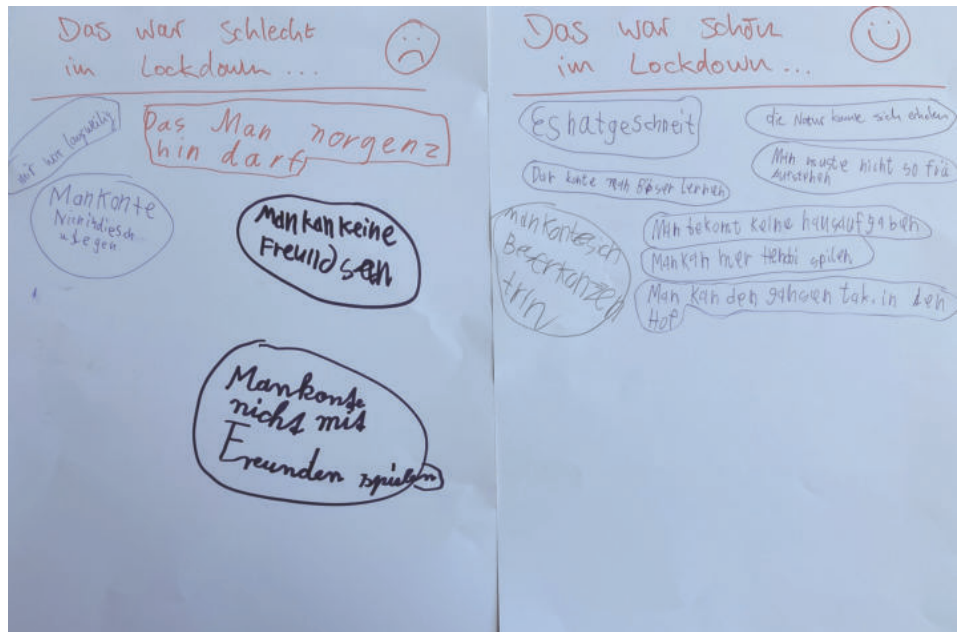 Das war schlecht
im Lockdown...
mir war langweilig
Das Man norgenz
hin darf
Mankonte
Man kan keine
Freund sen
Mankonte
nicht mit
Freunden spielen
Das war schön
im Lockdown...
Es hatgeschneit
die Natur konnte sich erholen
Man muste nicht so frü
aufstehen
Dar konte man Böser Lernen
mankontesich
Beserkonzen
trirn
Man bekomt keine hausaufgaben
Man kan mer spilen
Man kan den gahnzen tak. in den
Hof